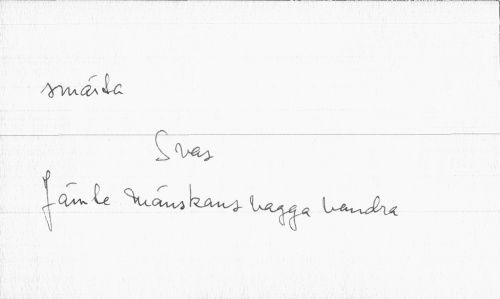 smárta
Svas
Jämte mánskans vagga vandra